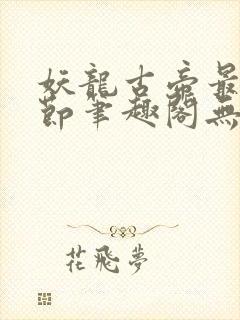 妖龍古帝最
節筆趣閣無
花飛夢